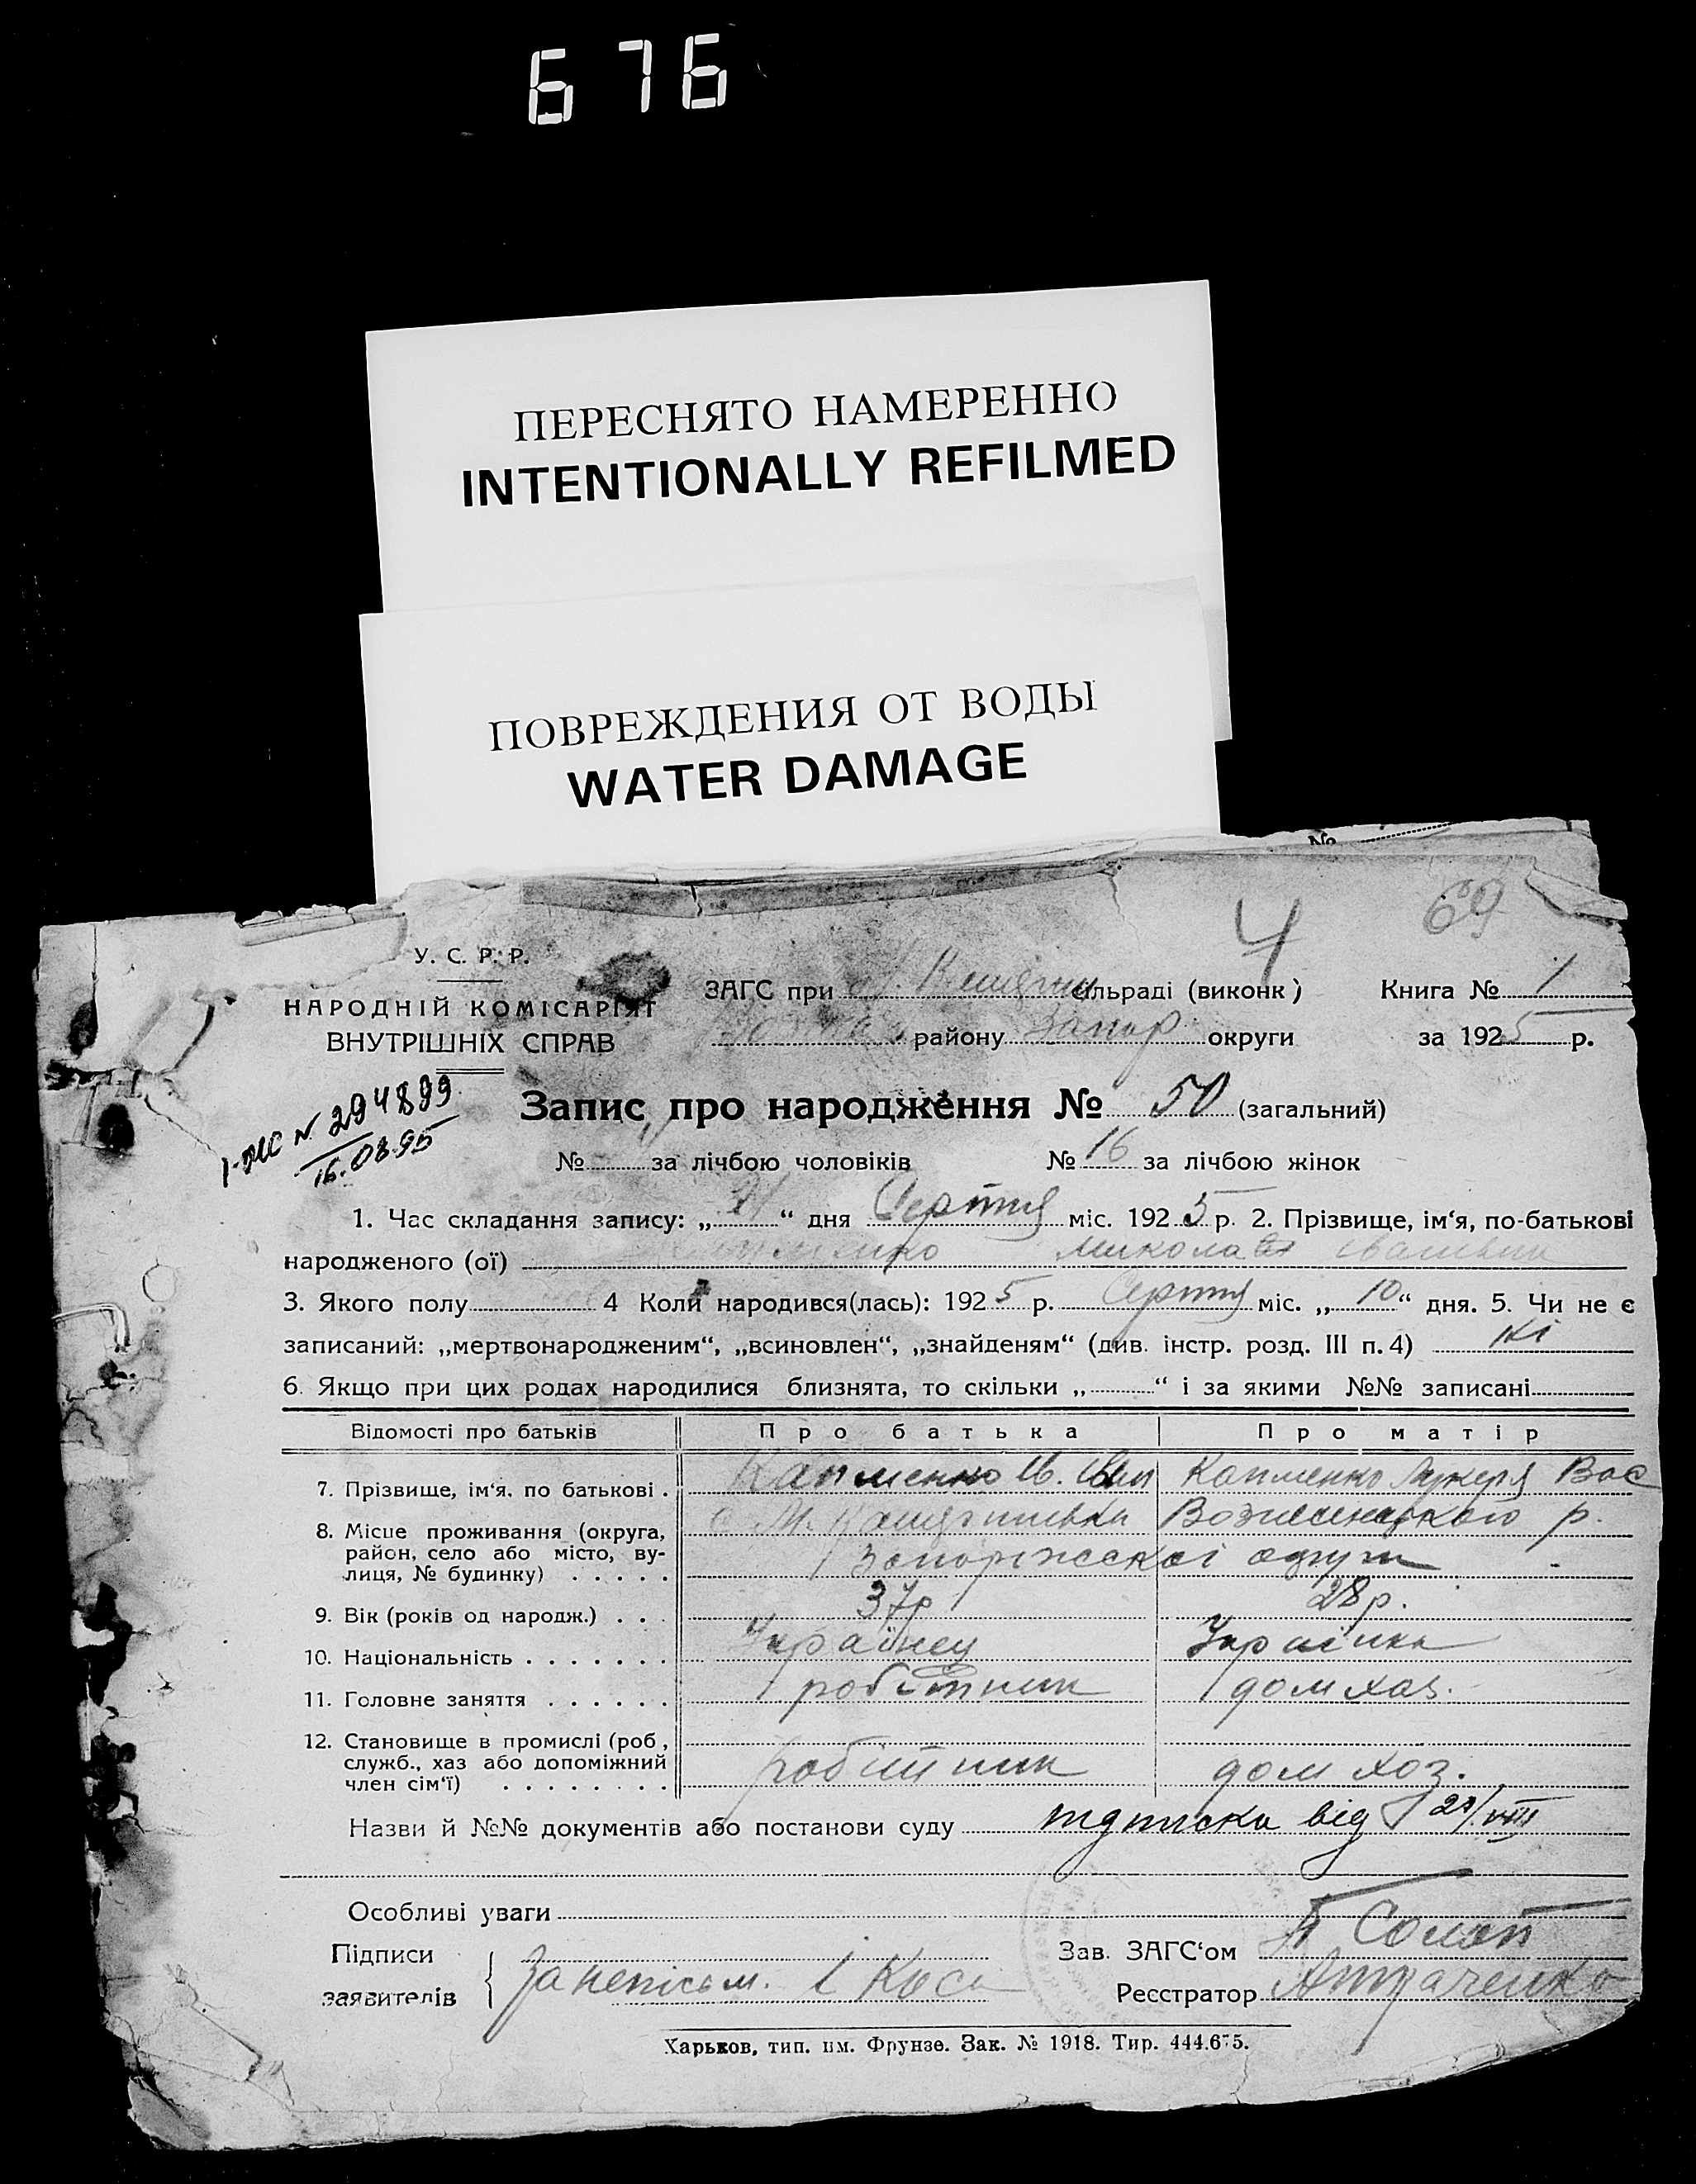 676
ПЕРЕСНЯТО НАМЕРЕННО
INTENTIONALLY REFILMED
ПОВРЕЖДЕНИЯ ОТ ВОДЫ
WATER DAMAGE
№
4 69
У. С. Р. Р.
НАРОДНІЙ КОМІСАРІЯТ
ВНУТРІШНІХ СПРАВ
ЗАГС при сільраді (виконк) Книга № 1
району Запор округи за 1925 р.
№ 294899
16.08.95
Запис про народження № 50 (загальний)
№ за лічбою чоловіків № 16 за лічбою жінок
1. Час складання запису: „ “ дня Серпня міс. 1925 р. 2. Прізвище, ім‘я, по-батькові
народженого (ої)
3. Якого полу 4 Коли народився(лась): 1925 р. Серпня міс. „10“ дня. 5. Чи не є
записаний: „мертвонародженим“, „всиновлен“, „знайденям“ (див. інстр. розд. III п. 4) ні
6. Якщо при цих родах народилися близнята, то скільки „ “ і за якими №№ записані
Відомості про батьків Про батька Про матір
7. Прізвище, ім‘я, по батькові . Вас
8. Місце проживання (округа, Вознесенського р.
район, село або місто, ву- Запоріжської округи
лиця, № будинку) . . . . .
9. Вік (років од народж.) . . . 37р 28р.
10. Національність . . . . . . . Українец Українка
11. Головне заняття . . . . . . робітник дом хаз.
12. Становище в промислі (роб, служб., хаз або допоміжний
член сім‘ї) . . . . . . . . робітник дом хоз.
Назви й №№ документів або постанови суду підписка від 21/VIII
Особливі уваги
Підписи Зав. ЗАГС‘ом
заявителів За неписьм. Реєстратор
Харьков, тип. им. Фрунзе. Зак. № 1918. Тир. 444.675.